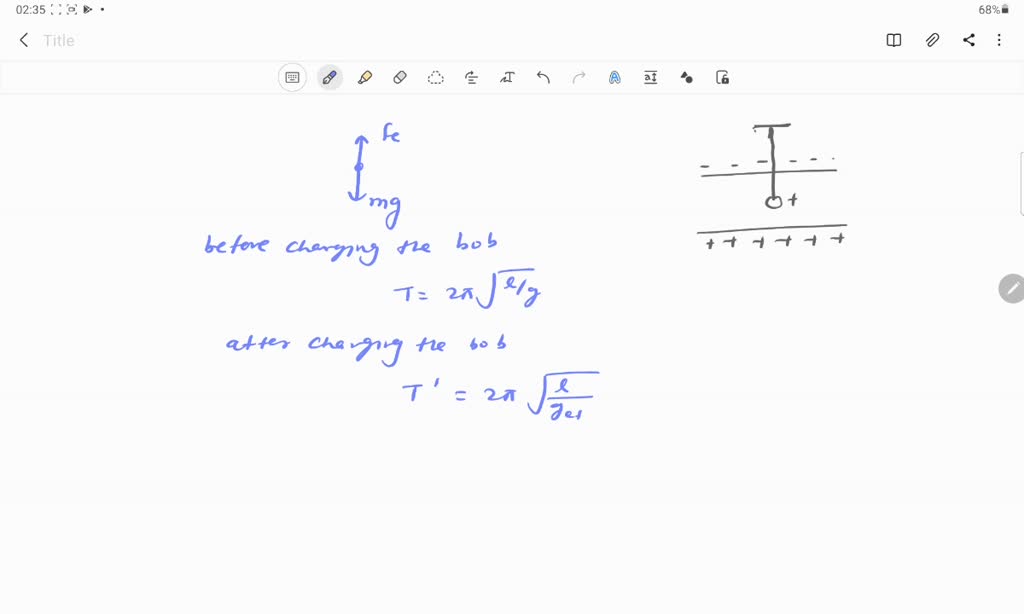 02:35
68%
Title
fe
mg
- - - - - -
+
+ + + + + +
before charging the bob
T = 2π √l/g
after charging the bob
T' = 2π √l/gef